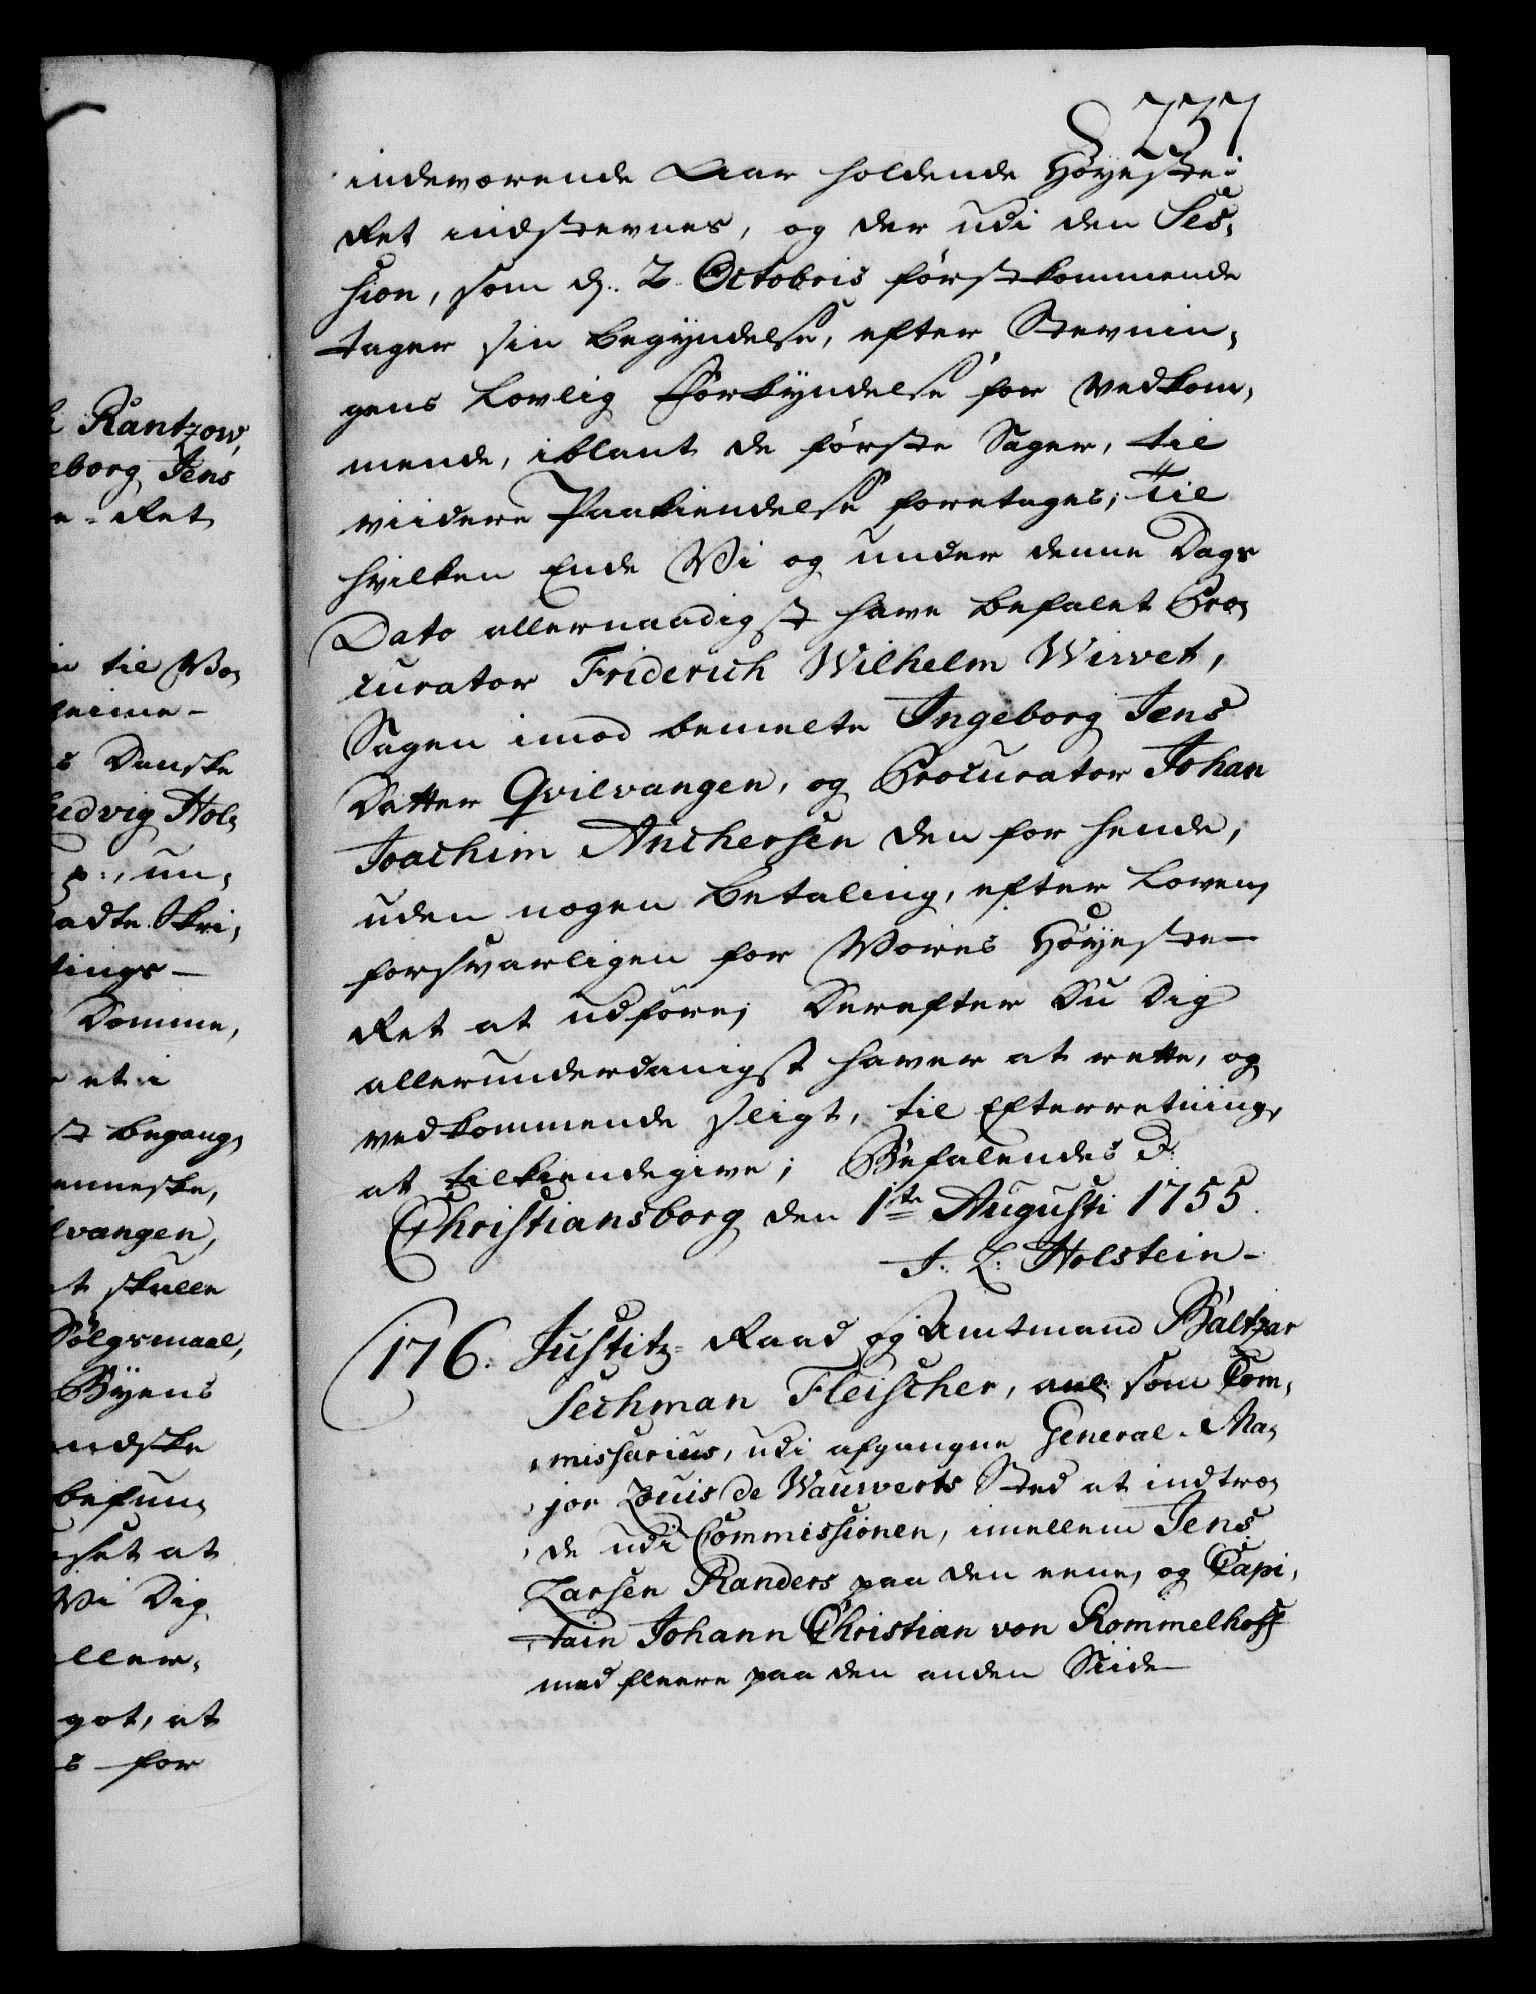 237
indeværende Aar holdende Høyeste-
Ret indstevnes, og der udi den Ses,
sion, som d. 2 Octobris førstkommende
tager sin begyndelse, efter Stevnin,
gens Lovlig Forkyndelse for Vedkom,
mende, iblant de første Sager, til
viidere Paakiendelse foretages; Til
hvilken Ende Vi og under denne Dags
Dato allernaadigst have befalet Pro,
curator Friderich Wilhelm Wivet,
Sagen imod bemelte Ingeborg Jens
Datter Qvilvangen, og Procurator Johan
Joachim Anchersen den for hende,
uden nogen betaling, efter Loven,
forsvarligen for Vores Høyeste-
Ret at udføre; Derefter Du Dig
allerunderdanigst haver at rette, og
vedkommende sligt, til Efterretning,
at tilkiendegive; Befalendes D:
Christiansborg den 1ste Augusti 1755.
J. L. Holstein-
176. Justitz-Raad og Amtmand Baltzar
Sechman Fleischer, anl: som Com,
missarius, udi afgangne General-Ma,
jor Louis de Wauwerts Sted at indtræ,
de udi Commissionen, imellem Jens
Larsen Randers paa den eene, og Capi,
tain Johann Christian von Rommelhoff
med fleere paa den anden Siide
Rantzow,
eborg Jens
e-Ret
til Vo,
Danske
udvig Hol,
un,
Skri,
tings-
Domme,
et i
st begang,
enneske,
lvangen,
t skulle
Sølgsmaal,
Byens
ndske
befun,
set at
Vi Dig
aller,
got, at
s for